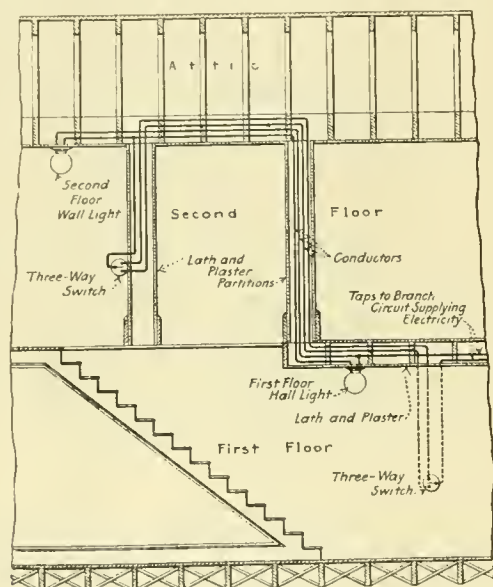 Attic
Second
Floor
Wall Light
Second
Floor
Three-Way
Switch
Lath and
Plaster
Partitions
Conductors
Taps to Branch
Circuit Supplying
Electricity
First Floor
Hall Light
Lath and Plaster
First Floor
Three-Way
Switch